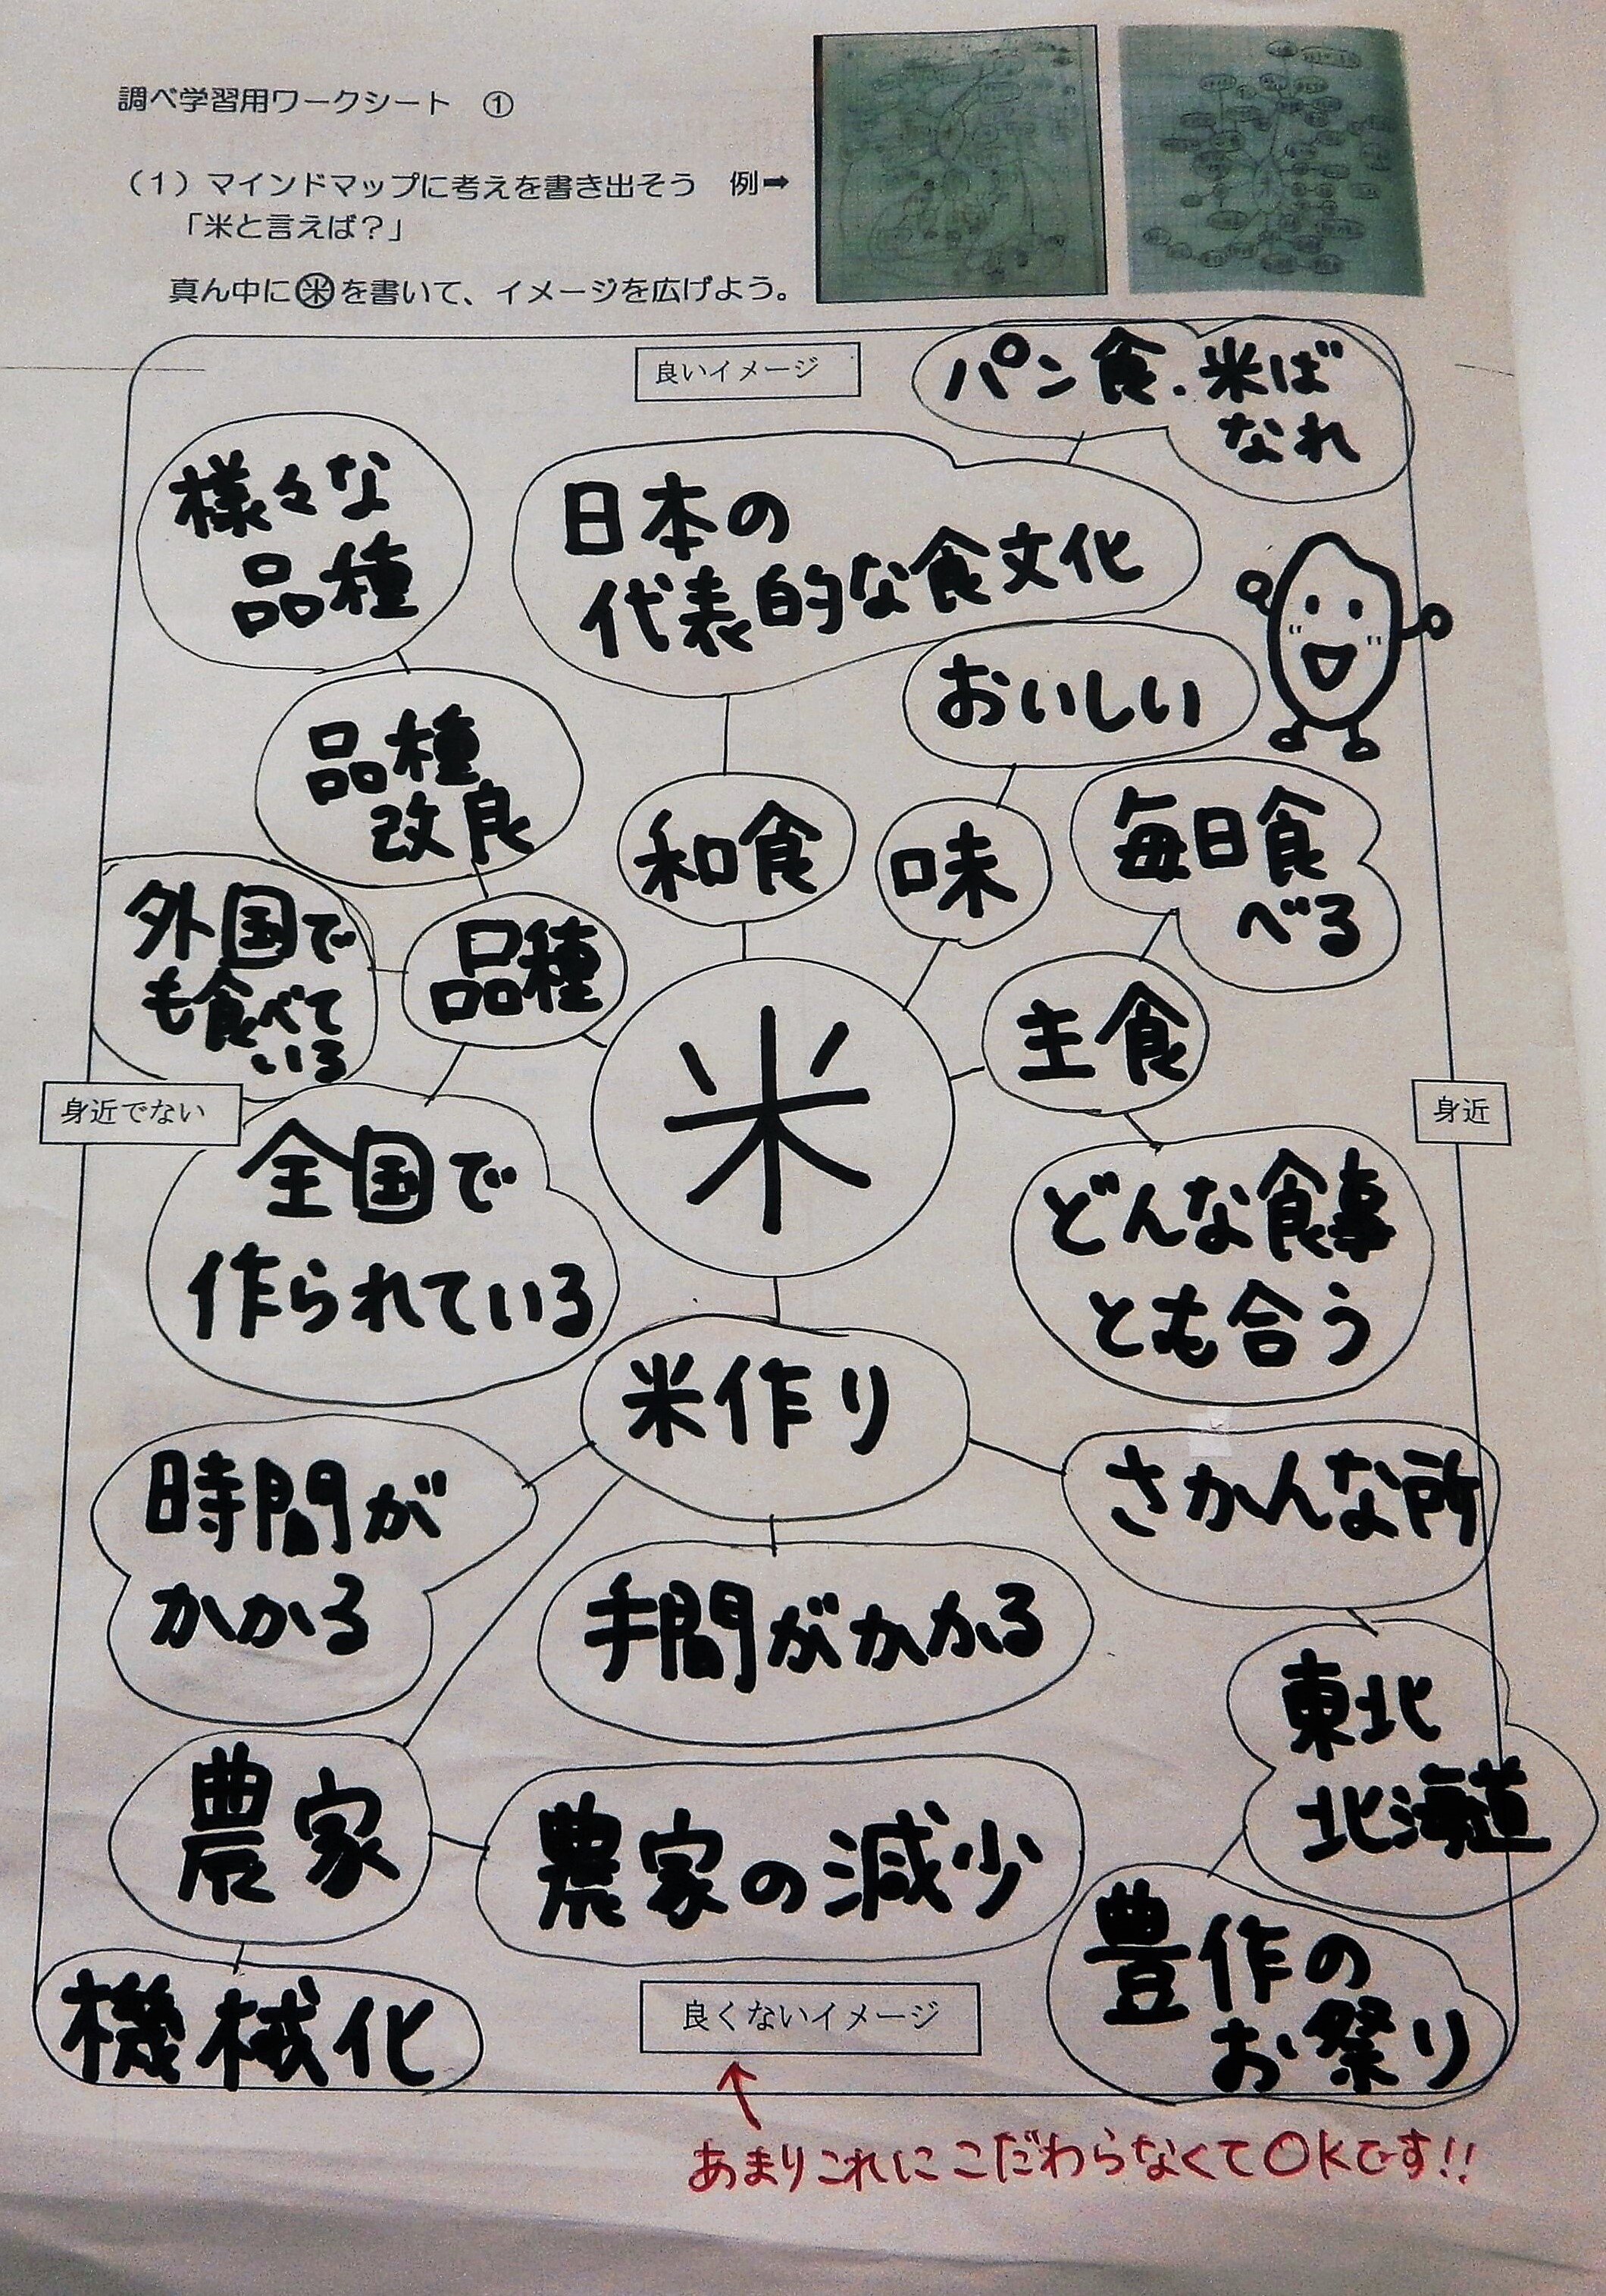 調べ学習用ワークシート ①
（１）マインドマップに考えを書き出そう 例➡
「米と言えば？」
真ん中に㊍を書いて、イメージを広げよう。
良いイメージ
パン食・米ば
なれ
様々な
品種
日本の
代表的な食文化
おいしい
品種
改良
和食
味
毎日食
べる
外国で
も食べて
いる
品種
主食
米
身近でない
身近
全国で
作られている
どんな食事
とも合う
米作り
時間が
かかる
さかんな所
手間がかかる
東北
北海道
農家
農家の減少
豊作の
お祭り
機械化
良くないイメージ
あまりこれにこだわらなくてOKです!!